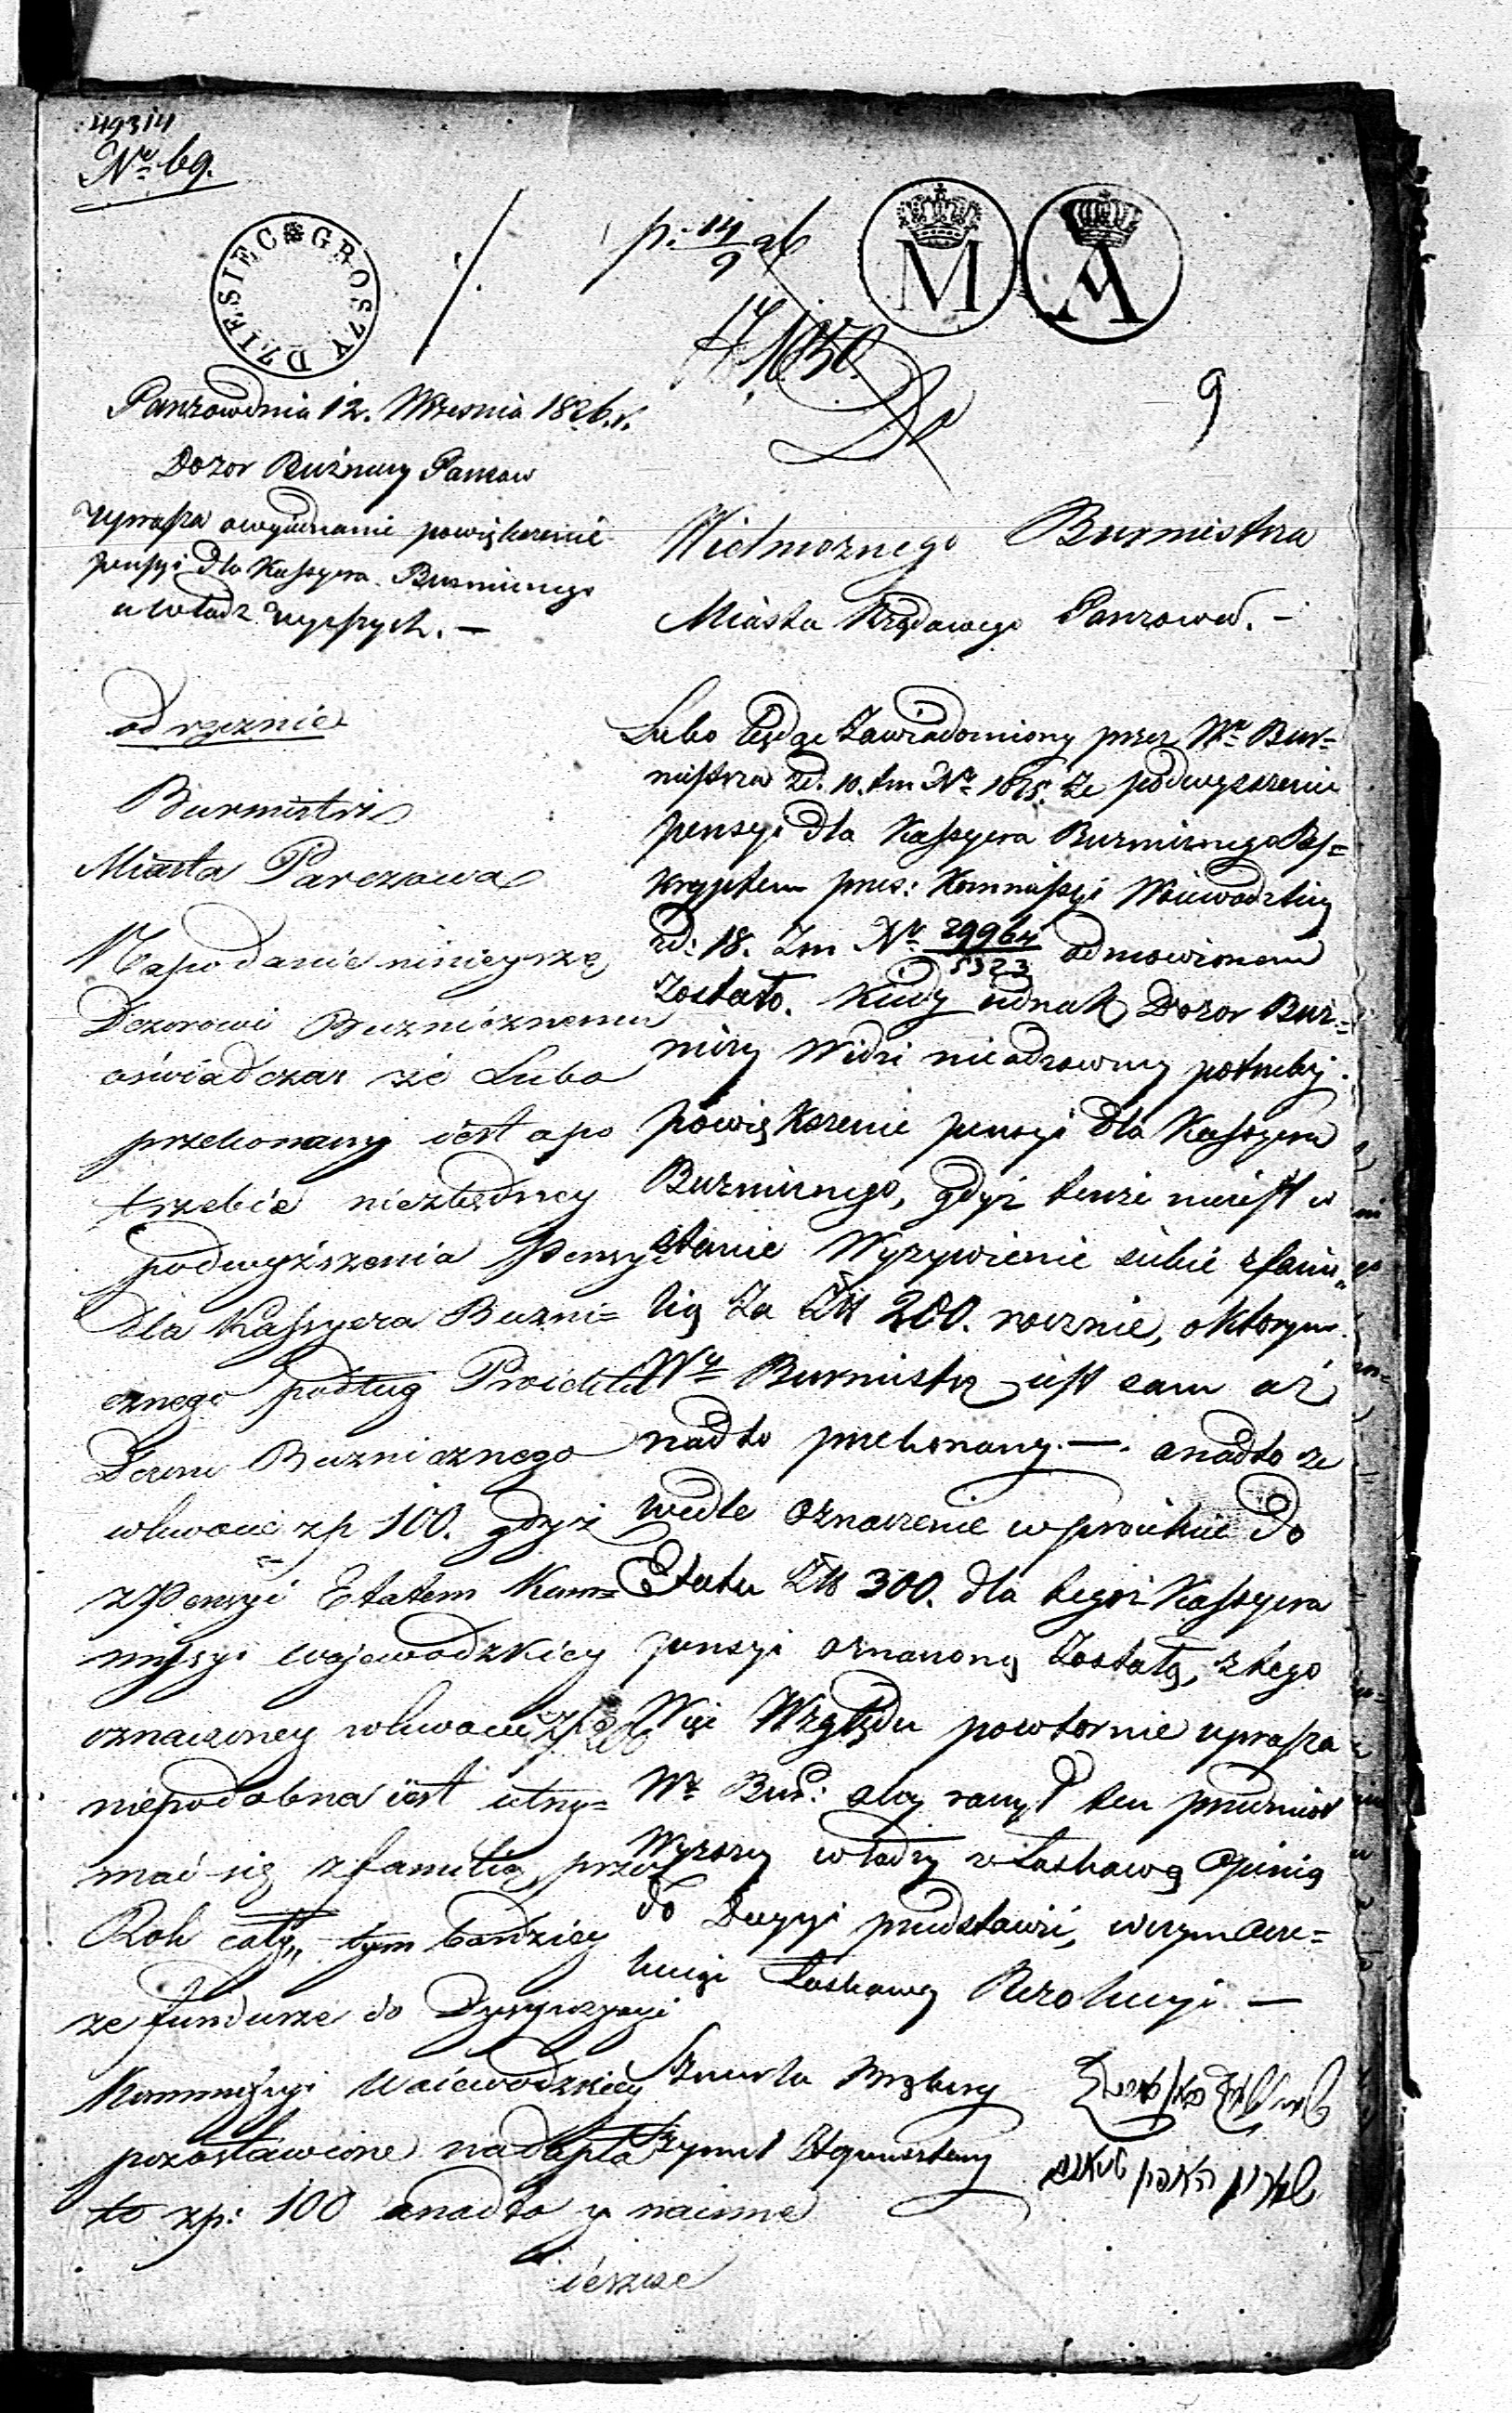 49314
Nr 69.
DZIESIEC GROSZY
p: 14/9 26
M A
1050.
9
Parczow dnia 12. Wrzesnia 1826. r.
Dozor Bużniczy Parczow
uprasza o wyiednanie powiększenie
pensyi dla Kassyera Buznicznego
u Władz wyższych. —
Do
Wielmożnego Burmistrza
Miasta Rządowego Parczowa. —
Lubo będąc Zawiadomiony przez Wo Bur=
mistrza z d. 10. t m Nr 1015. że podwyższenie
pensyi dla Kassyera Buznicznego Res=
kryptem prześ: Kommissyi Woiewodzkiey
z d: 18. Zm Nr 29964/5323 odmowionem
Zostało. Kiedy iednak Dozor Buz=
niczy Widzi nieodzowney potrzeby
powiększenie pensyi dla Kassyera
Buznicznego, gdyż tenże nieiest w
stanie Wyżywienie siebie z fami=
lią Za Złt 200. rocznie, o ktorym
Wy Burmistrz iest sam aż
nadto przekonany. — a nadto ze
wedle oznaczenie w proiekcie do
Etatu Złt 300. dla tegoż Kassyera
pensyi oznaczoną Zostałą, z tego
Więc Względu powtornie uprasza
We Bur: aby raczył ten przedmiot
Wyższey władzy z łaskawą Opinią
do Decyzyi przedstawić, w czym ocze=
kuie Łaskawey Rezolucyi. —
Szmerla
Szymel
odręcznie
Burmistrz
Miasta Parczowa
Na podanie ninieysze
Dozorowi Buznicznemu
oświadcza że Lubo
przekonany iest o po
trzebie niezbędney
podwyższenia Pensyi
dla Kassyera Buzni=
cznego podług Proiektu
Dozoru Buznicznego
w kwocie zp 100. gdyż
z Pensyi Etatem Kom=
missyi Wojewodzkiey
oznaczoney w kwocie zp 200
niepodobna iest utrzy=
mać się z familią przez
Rok cały, tym bardziey
ze fundusze do Dyspozycyi
Kommissyi Woiewodzkiey
pozostawione na
to zp: 100 a nadto y
ieszcze